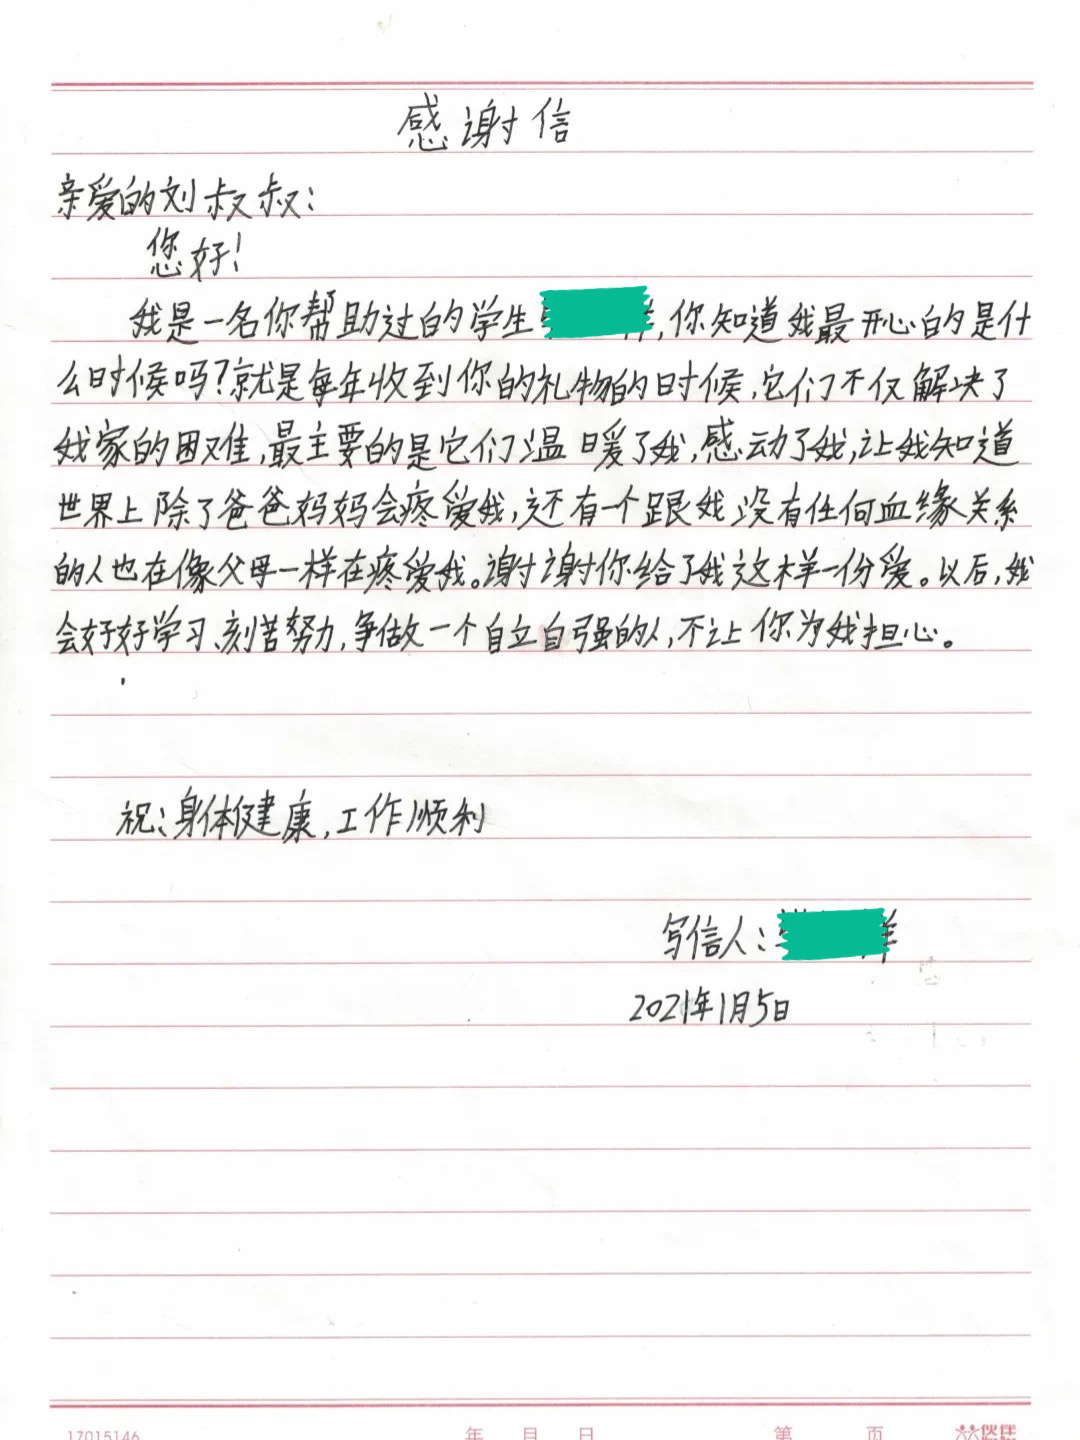 感谢信
亲爱的刘叔叔：
您好！
我是一名你帮助过的学生 ，你知道我最开心的是什
么时候吗？就是每年收到你的礼物的时候，它们不仅解决了
我家的困难，最主要的是它们温暖了我，感动了我，让我知道
世界上除了爸爸妈妈会疼爱我，还有一个跟我没有任何血缘关系
的人也在像父母一样在疼爱我。谢谢你给了我这样一份爱。以后，我
会好好学习、刻苦努力，争做一个自立自强的人，不让你为我担心。
祝：身体健康，工作顺利
写信人：
2021年1月5日
17015146 年 月 日 第 页